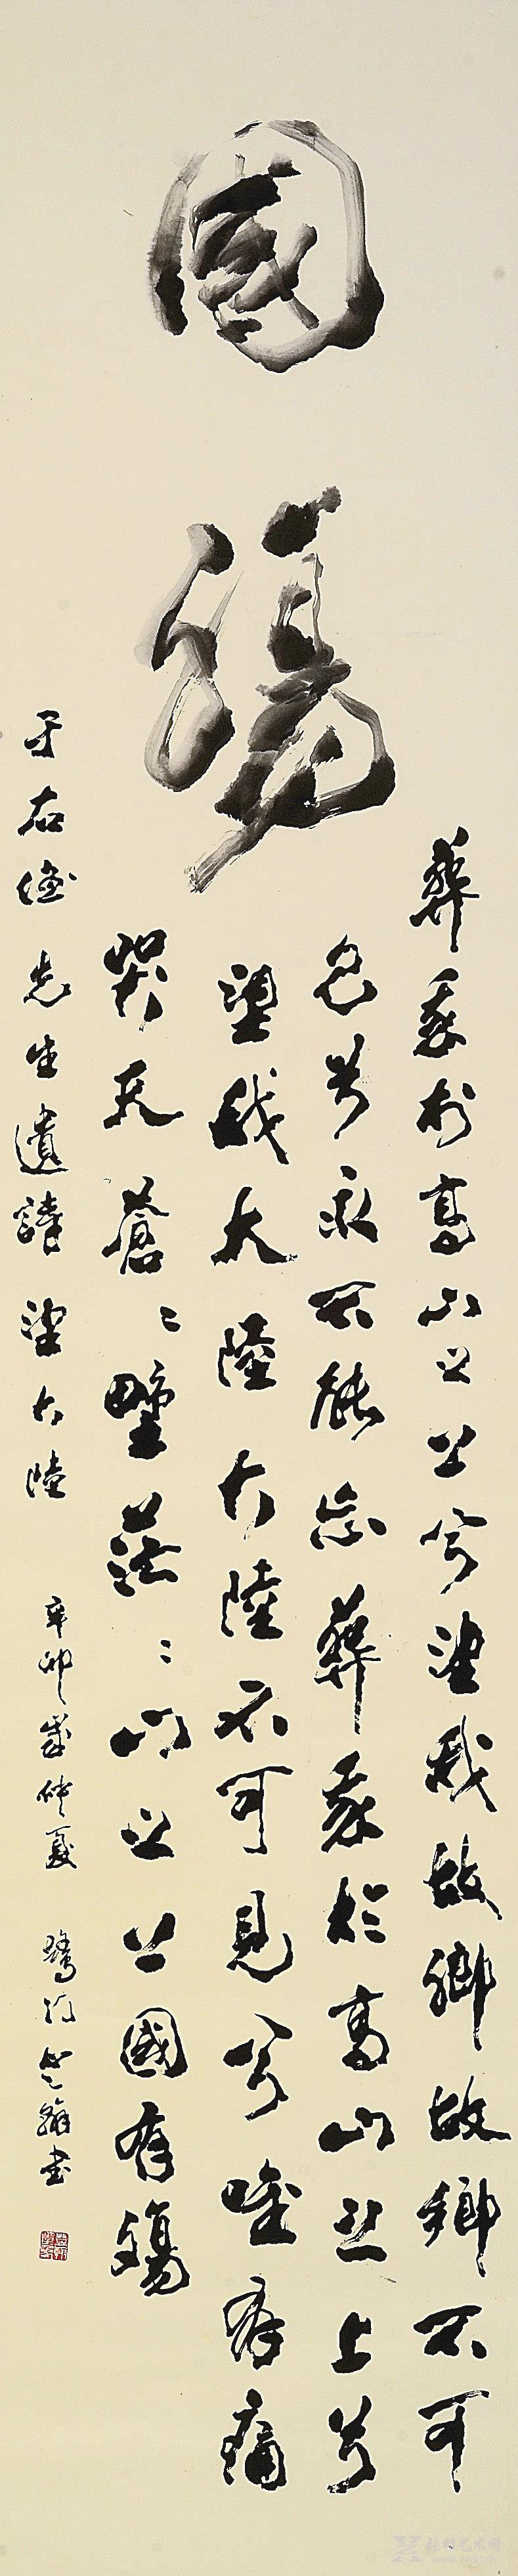 國殤
葬我於高山之上兮望我故鄉故鄉不可
見兮永不能忘葬我於高山之上兮
望我大陸大陸不可見兮唯有痛
哭天蒼〻野茫〻山之上國有殤
于右任先生遺詩望大陸 辛卯歲仲夏 書